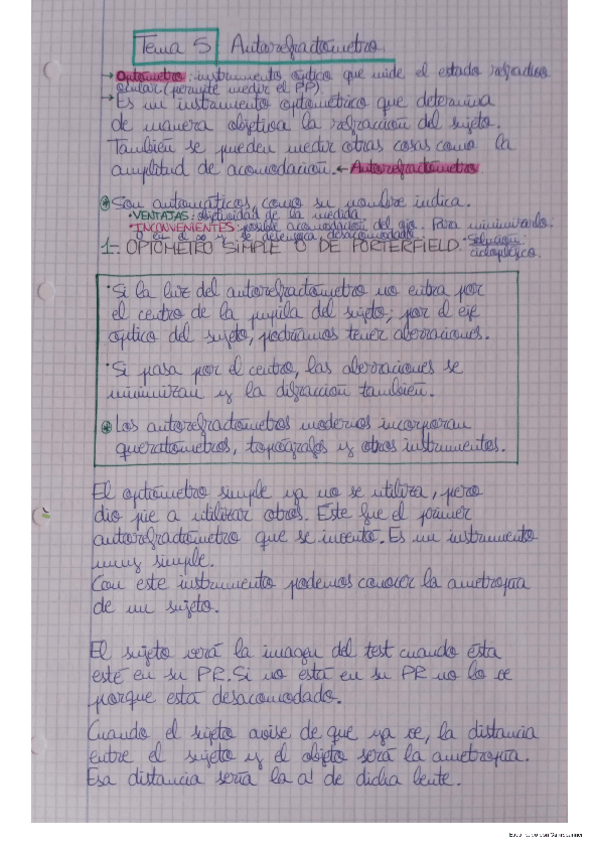 Tema 5 Autorefractómetro
→ Optómetro: instrumento óptico que mide el estado refractivo
ocular (permite medir el PP).
→ Es un instrumento optométrico que determina
de manera objetiva la refracción del sujeto.
También se pueden medir otras cosas como la
amplitud de acomodación. ← Autorefractómetro
Son automáticos, como su nombre indica.
• VENTAJAS: objetividad de la medida
• INCONVENIENTES: posible acomodación del ojo. Para minimizarlo:
desacomodado.
1- OPTÓMETRO SIMPLE O DE PORTERFIELD. Solución:
ciclopléjico.
• Si la luz del autorefractómetro no entra por
el centro de la pupila del sujeto, por el eje
óptico del sujeto, podríamos tener aberraciones.
• Si pasa por el centro, las aberraciones se
minimizan y la difracción también.
Los autorefractómetros modernos incorporan
queratómetros, topógrafos y otros instrumentos.
El optómetro simple ya no se utiliza, pero
dio pie a utilizar otros. Este fue el primer
autorefractómetro que se inventó. Es un instrumento
muy simple.
Con este instrumento podemos conocer la ametropía
de un sujeto.
El sujeto verá la imagen del test cuando ésta
esté en su PR. Si no está en su PR no lo ve
porque está desacomodado.
Cuando el sujeto avise de que ya ve, la distancia
entre el sujeto y el objeto será la ametropía.
Esa distancia sería la a' de dicha lente.